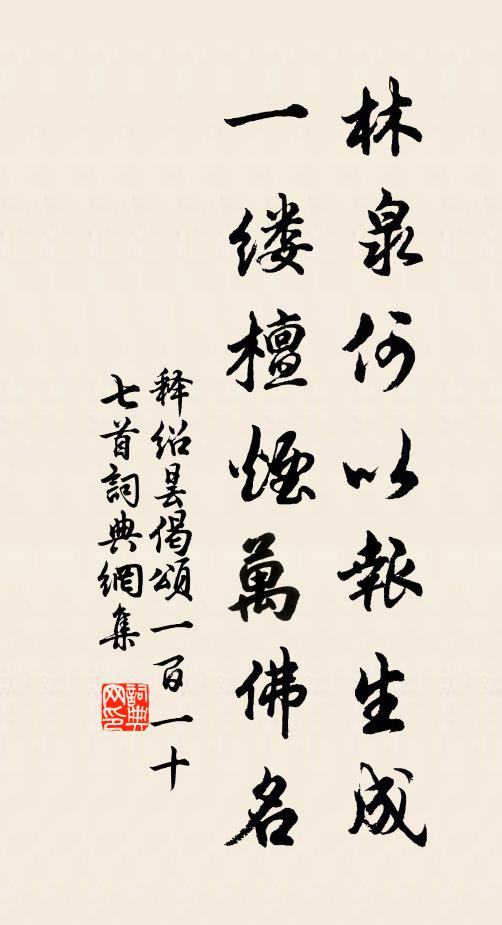 林泉何以報生成
一缕檀煙萬佛名
释绍昙偈頌一百一十
七首詞典網集
詞典网印